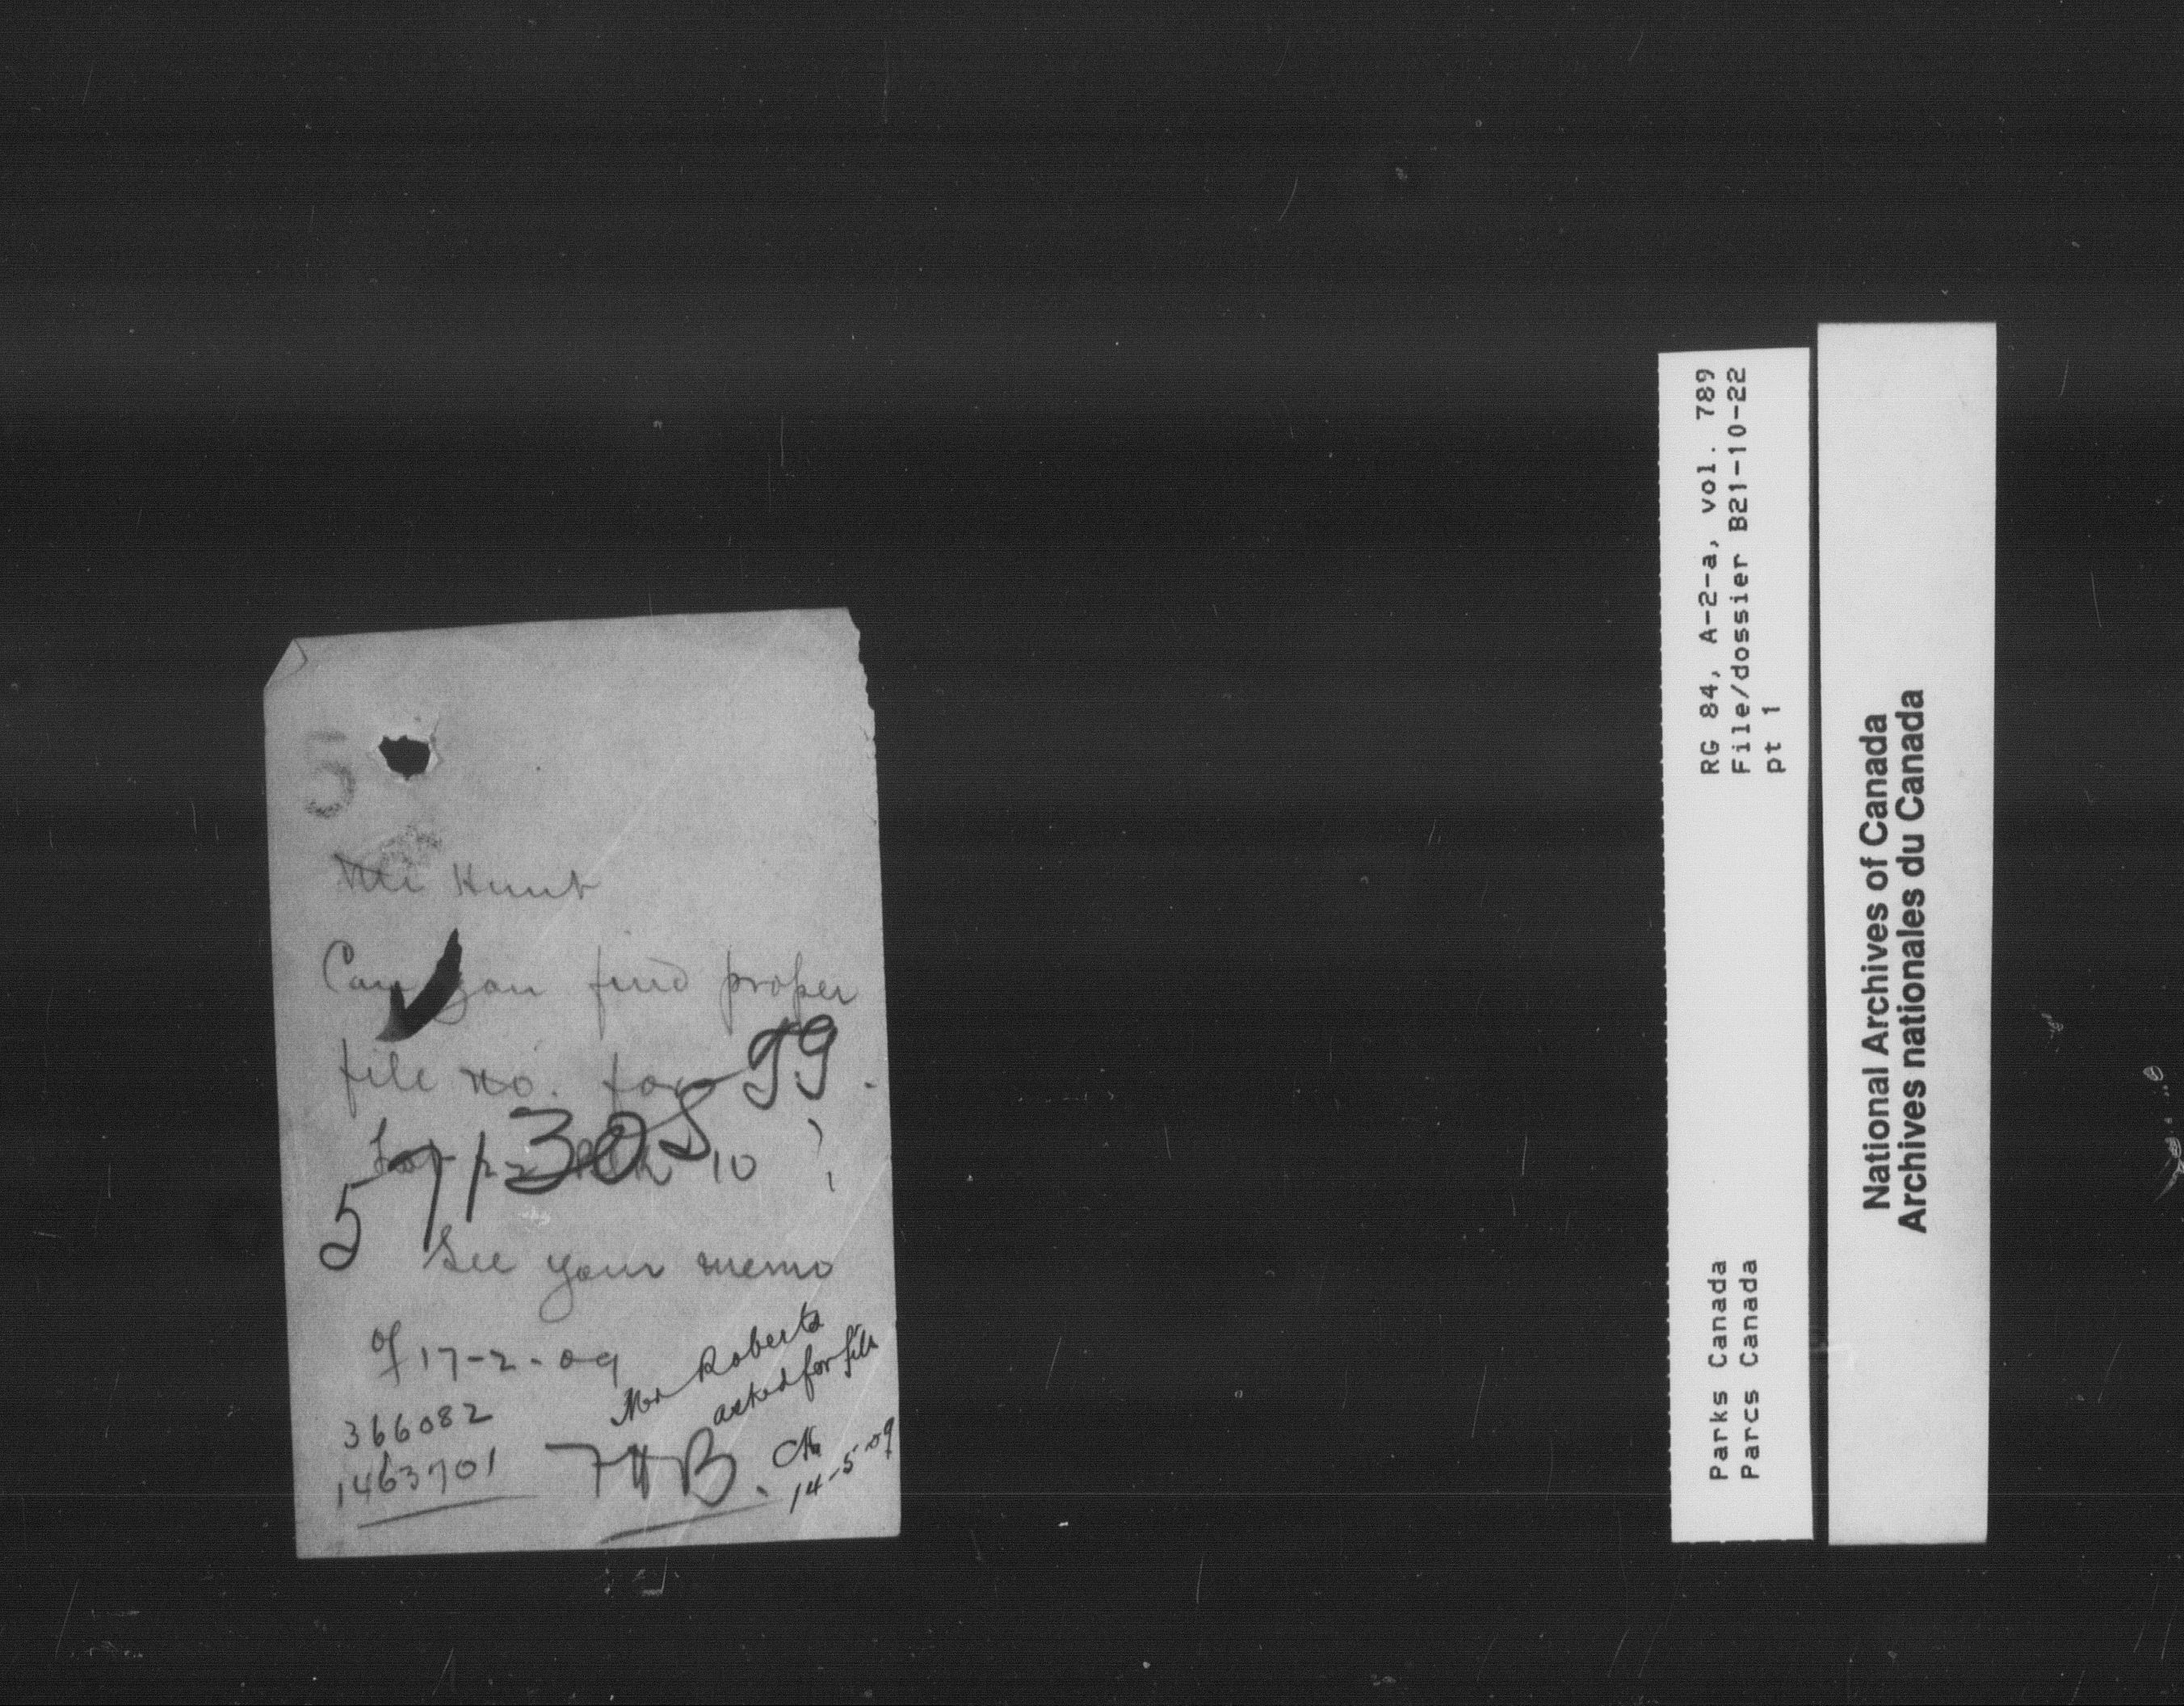 5
Mr Hunt
Can you find proper
file no. for
Lot 22 Blk 10 ?
5713059 99
See your memo
of 17-2-09
Mr Roberts
asked for file
14-5-09
366082
1463701
7HB.
RG 84, A-2-a, vol. 789
File/dossier B21-10-22
pt 1
Parks Canada
Parcs Canada
National Archives of Canada
Archives nationales du Canada